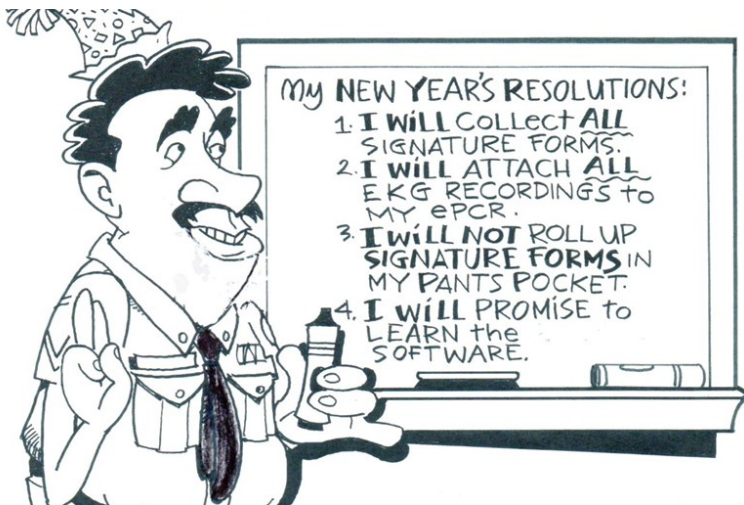 My NEW YEAR'S RESOLUTIONS:
1. I WiLL COLLect ALL
SIGNATURE FORMS.
2. I WiLL ATTACH ALL
EKG RECORDINGS to
MY ePCR.
3. I WiLL NOT ROLL UP
SIGNATURE FORMS IN
MY PANTS POCKET.
4. I WiLL PROMISE to
LEARN the
SOFTWARE.